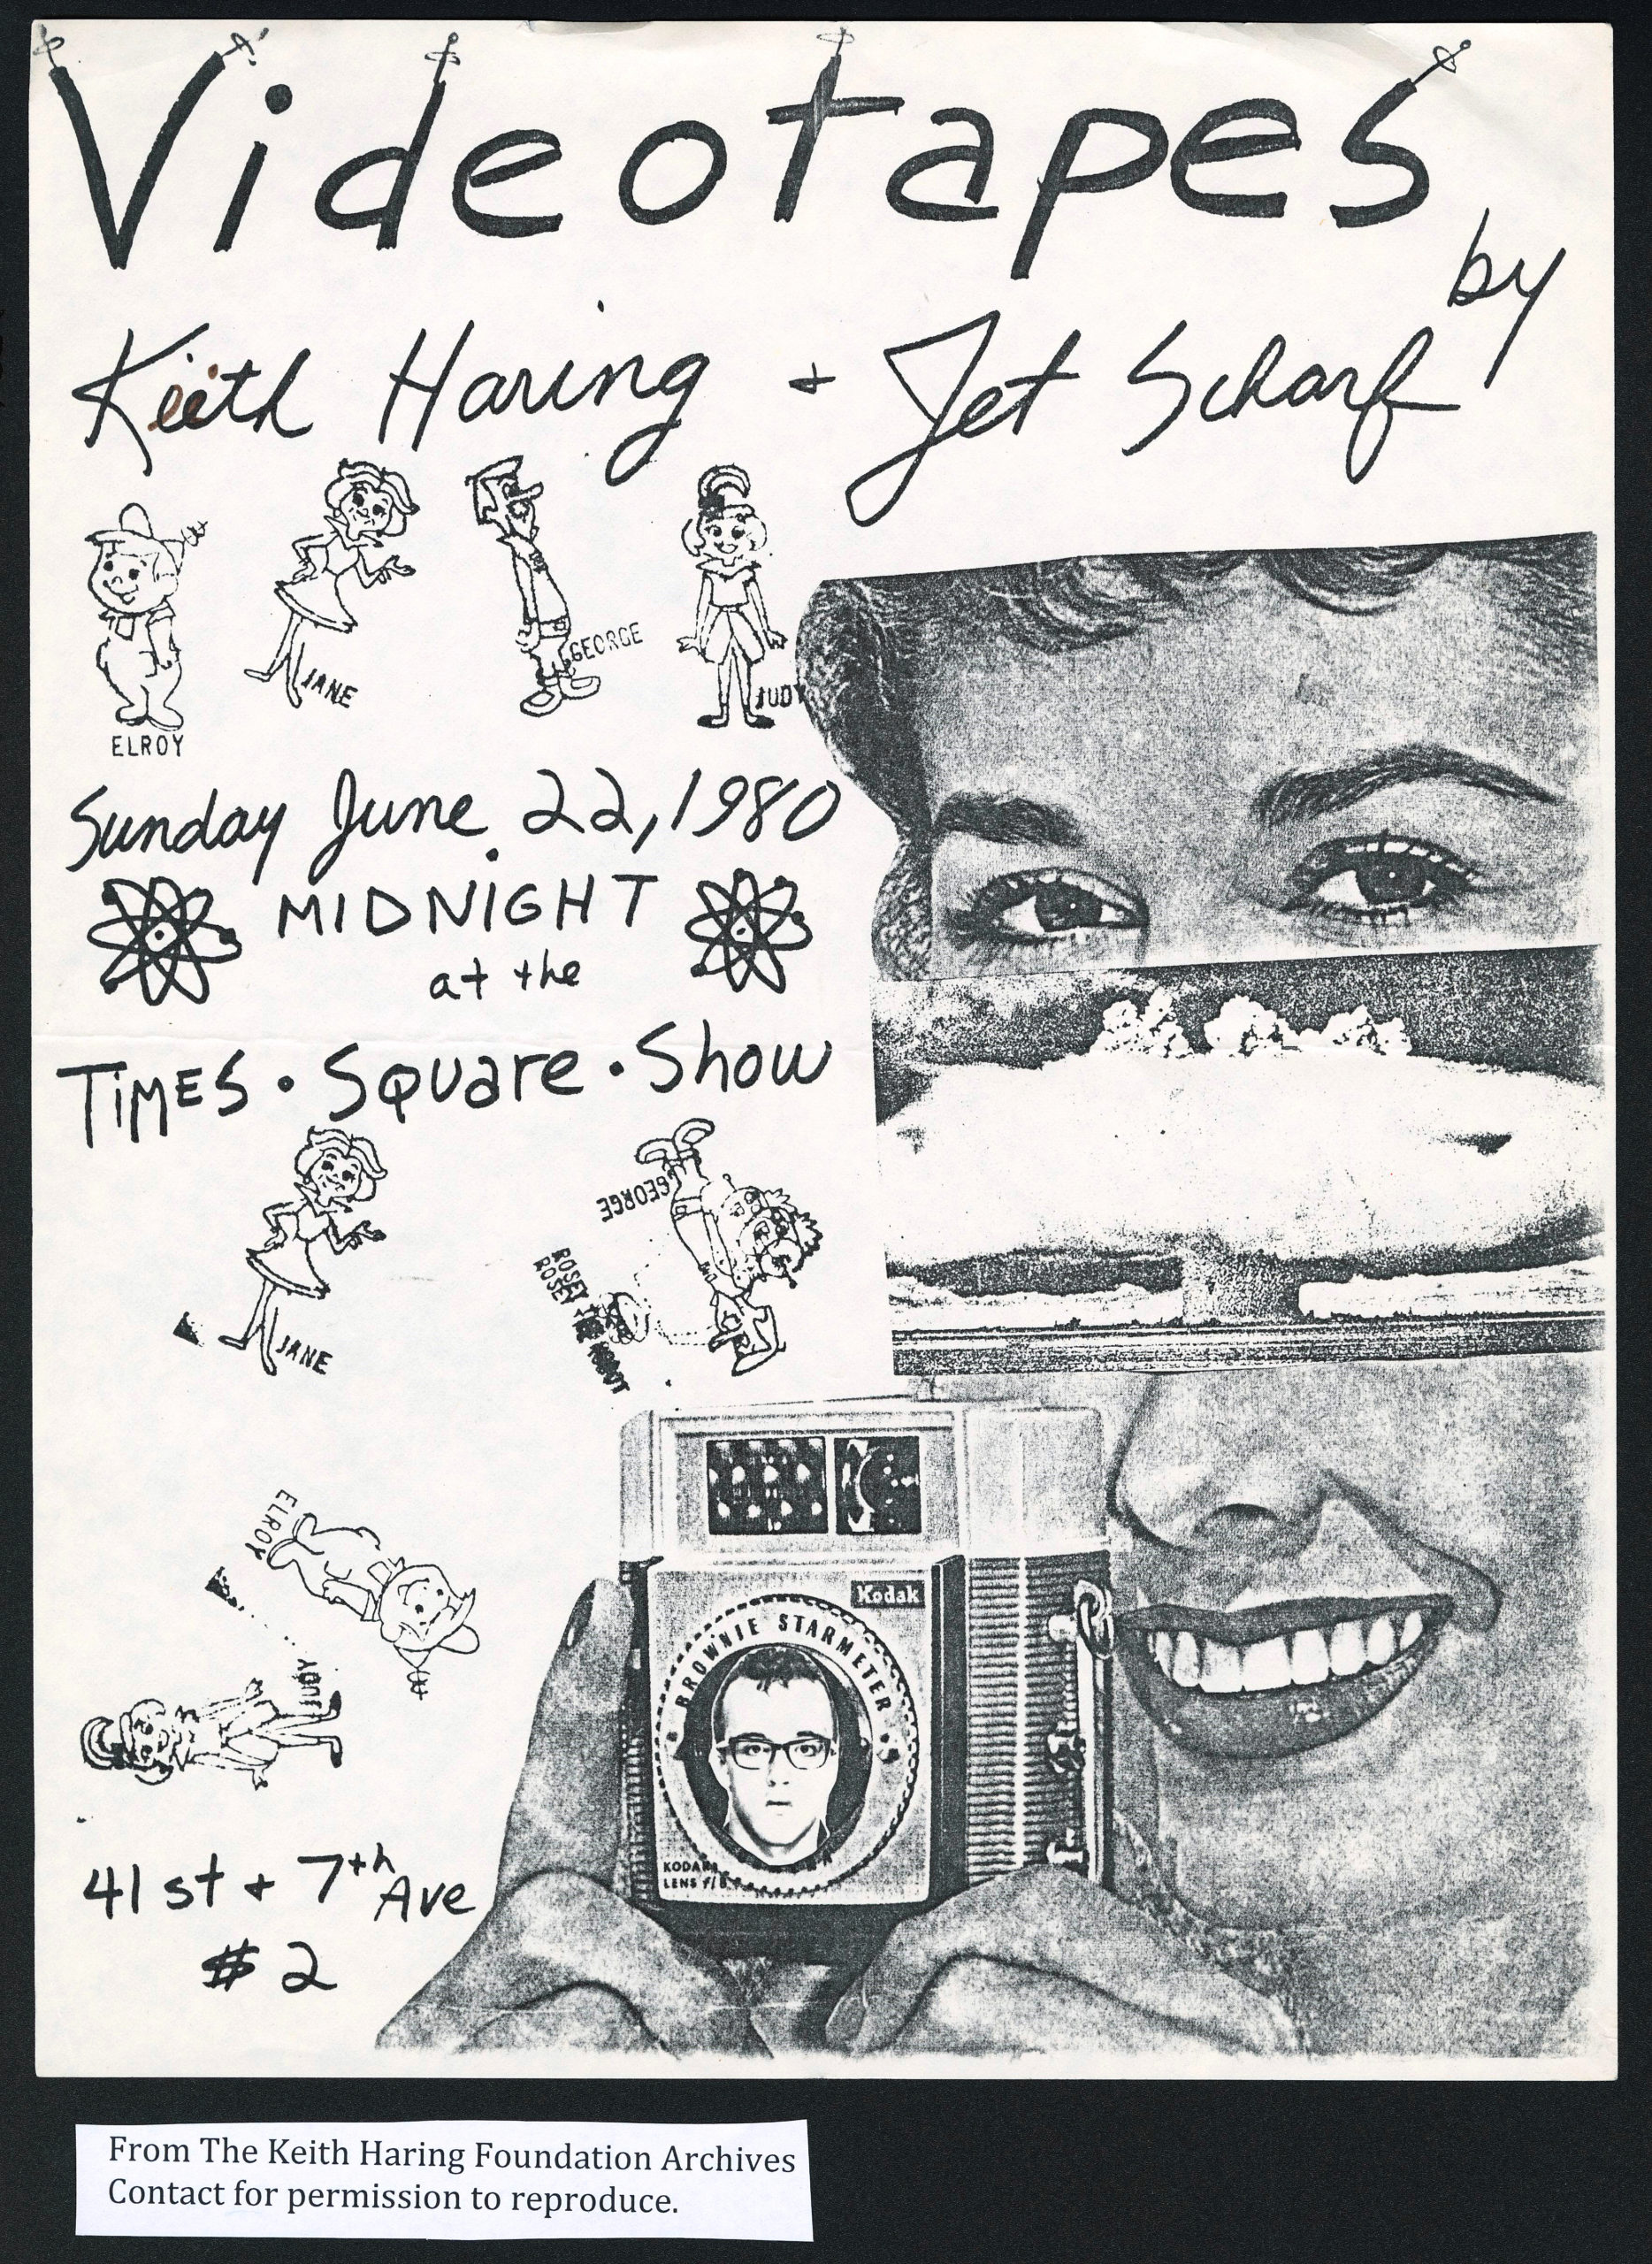 Videotapes
by
Keith Haring + Jet Scharf
ELROY
JANE
GEORGE
JUDY
Sunday June 22, 1980
MIDNIGHT
at the
TIMES • Square • Show
JANE
GEORGE
ROSEY
ROSEY THE ROBOT
ELROY
JUDY
Kodak
BROWNIE STARMETER
KODAK
LENS f/8
41st + 7th Ave
$2
From The Keith Haring Foundation Archives
Contact for permission to reproduce.